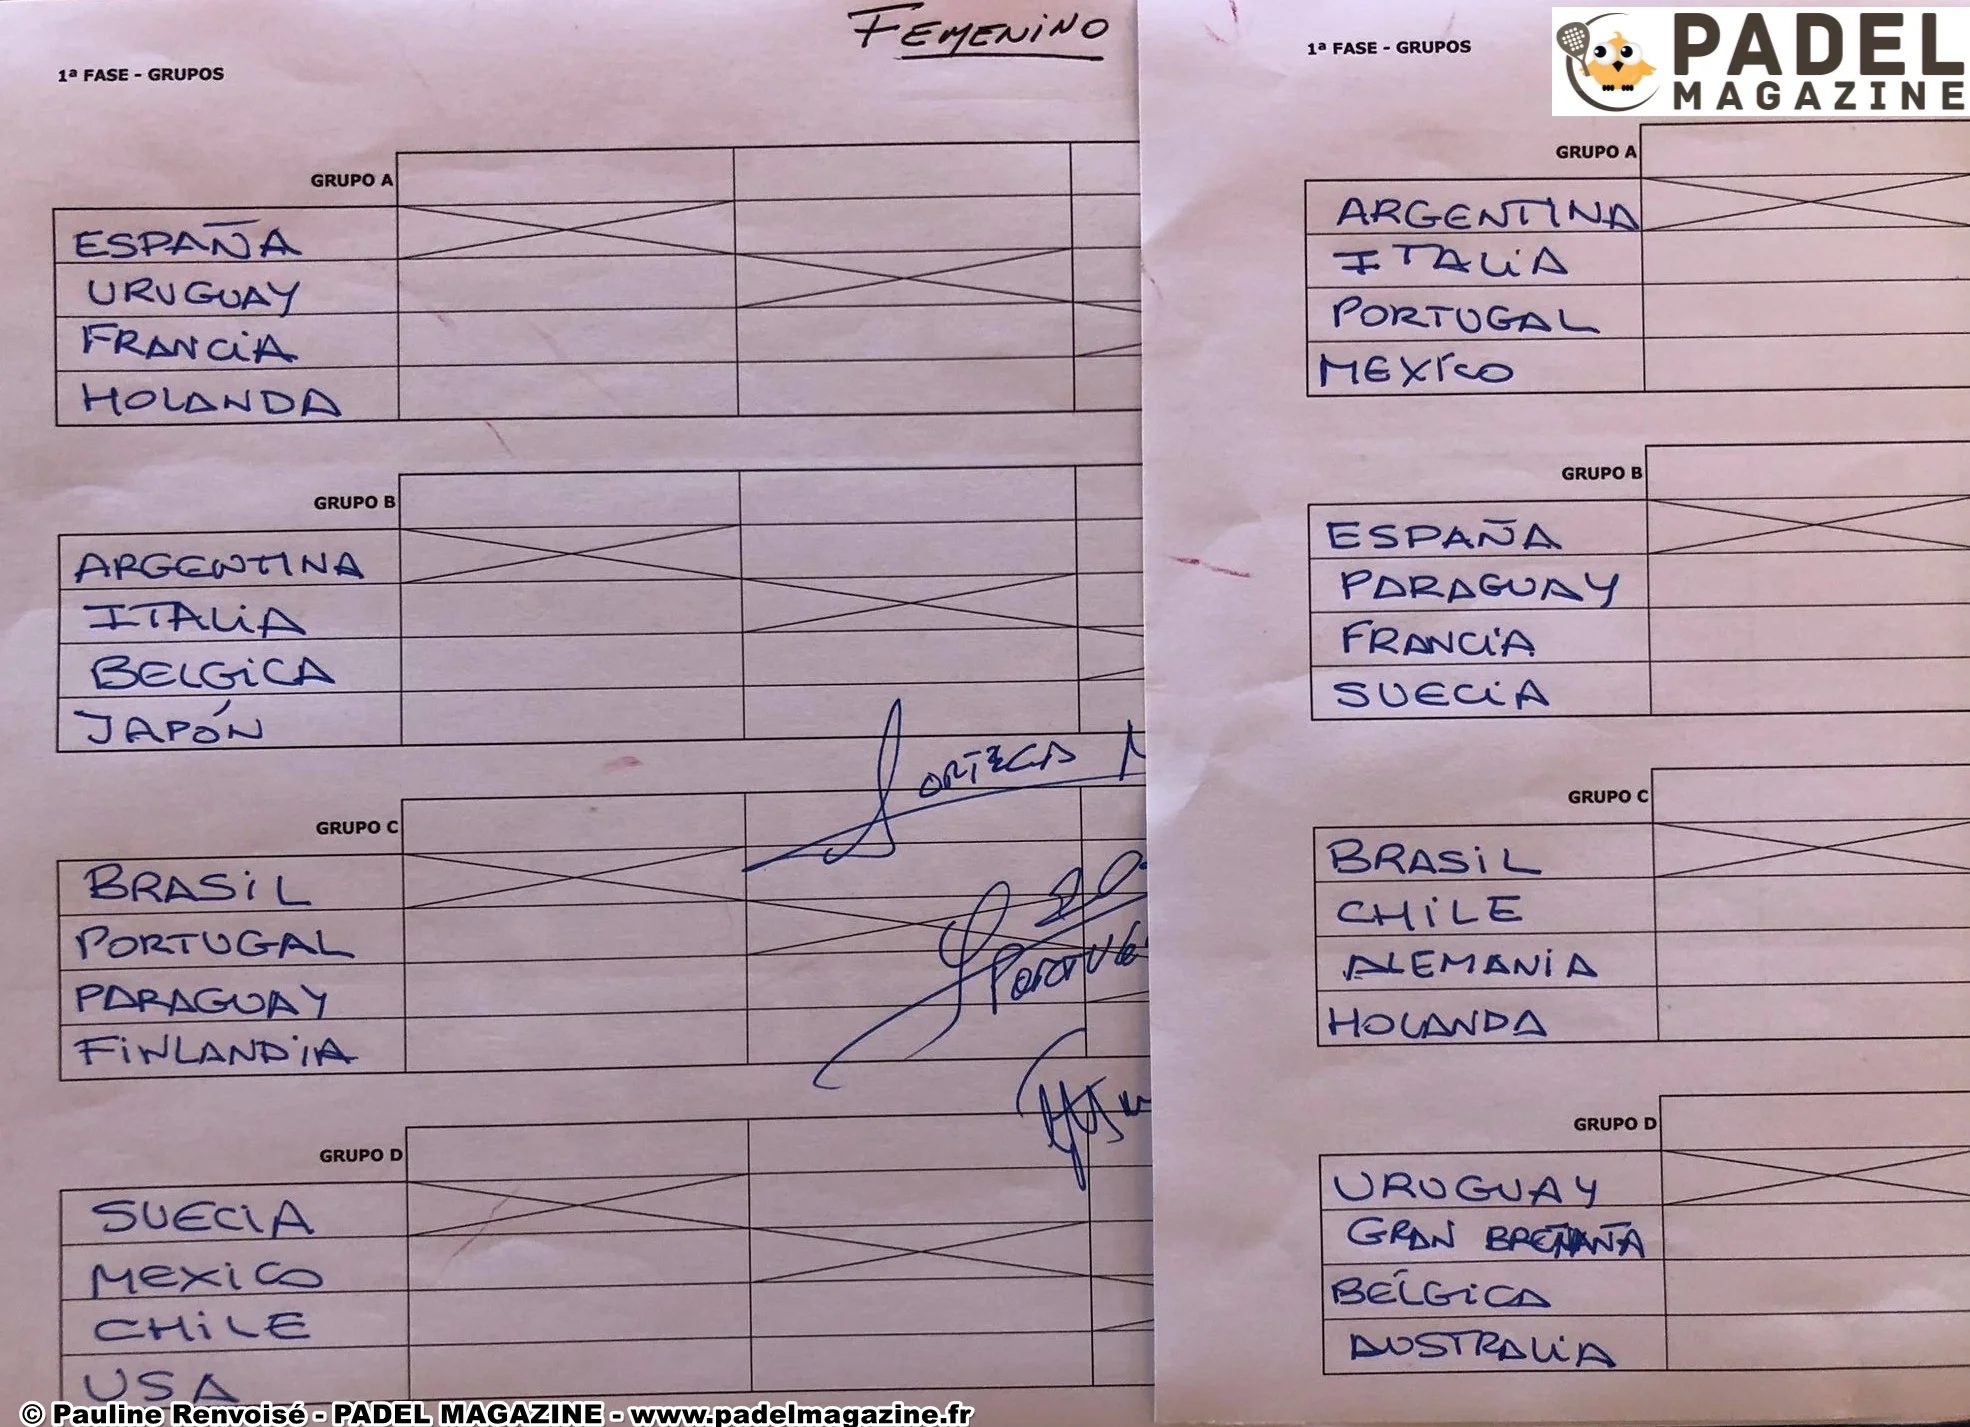 FEMENINO
1ª FASE - GRUPOS
GRUPO A
ESPAÑA
URUGUAY
FRANCIA
HOLANDA
GRUPO B
ARGENTINA
ITALIA
BELGICA
JAPÓN
GRUPO C
BRASIL
PORTUGAL
PARAGUAY
FINLANDIA
GRUPO D
SUECIA
MEXICO
CHILE
USA
© Pauline Renvoisé - PADEL MAGAZINE - www.padelmagazine.fr
PADEL
MAGAZINE
1ª FASE - GRUPOS
GRUPO A
ARGENTINA
ITALIA
PORTUGAL
MEXÍCO
GRUPO B
ESPAÑA
PARAGUAY
FRANCIA
SUECIA
GRUPO C
BRASIL
CHILE
ALEMANIA
HOLANDA
GRUPO D
URUGUAY
GRAN BRETAÑA
BÉLGICA
AUSTRALIA